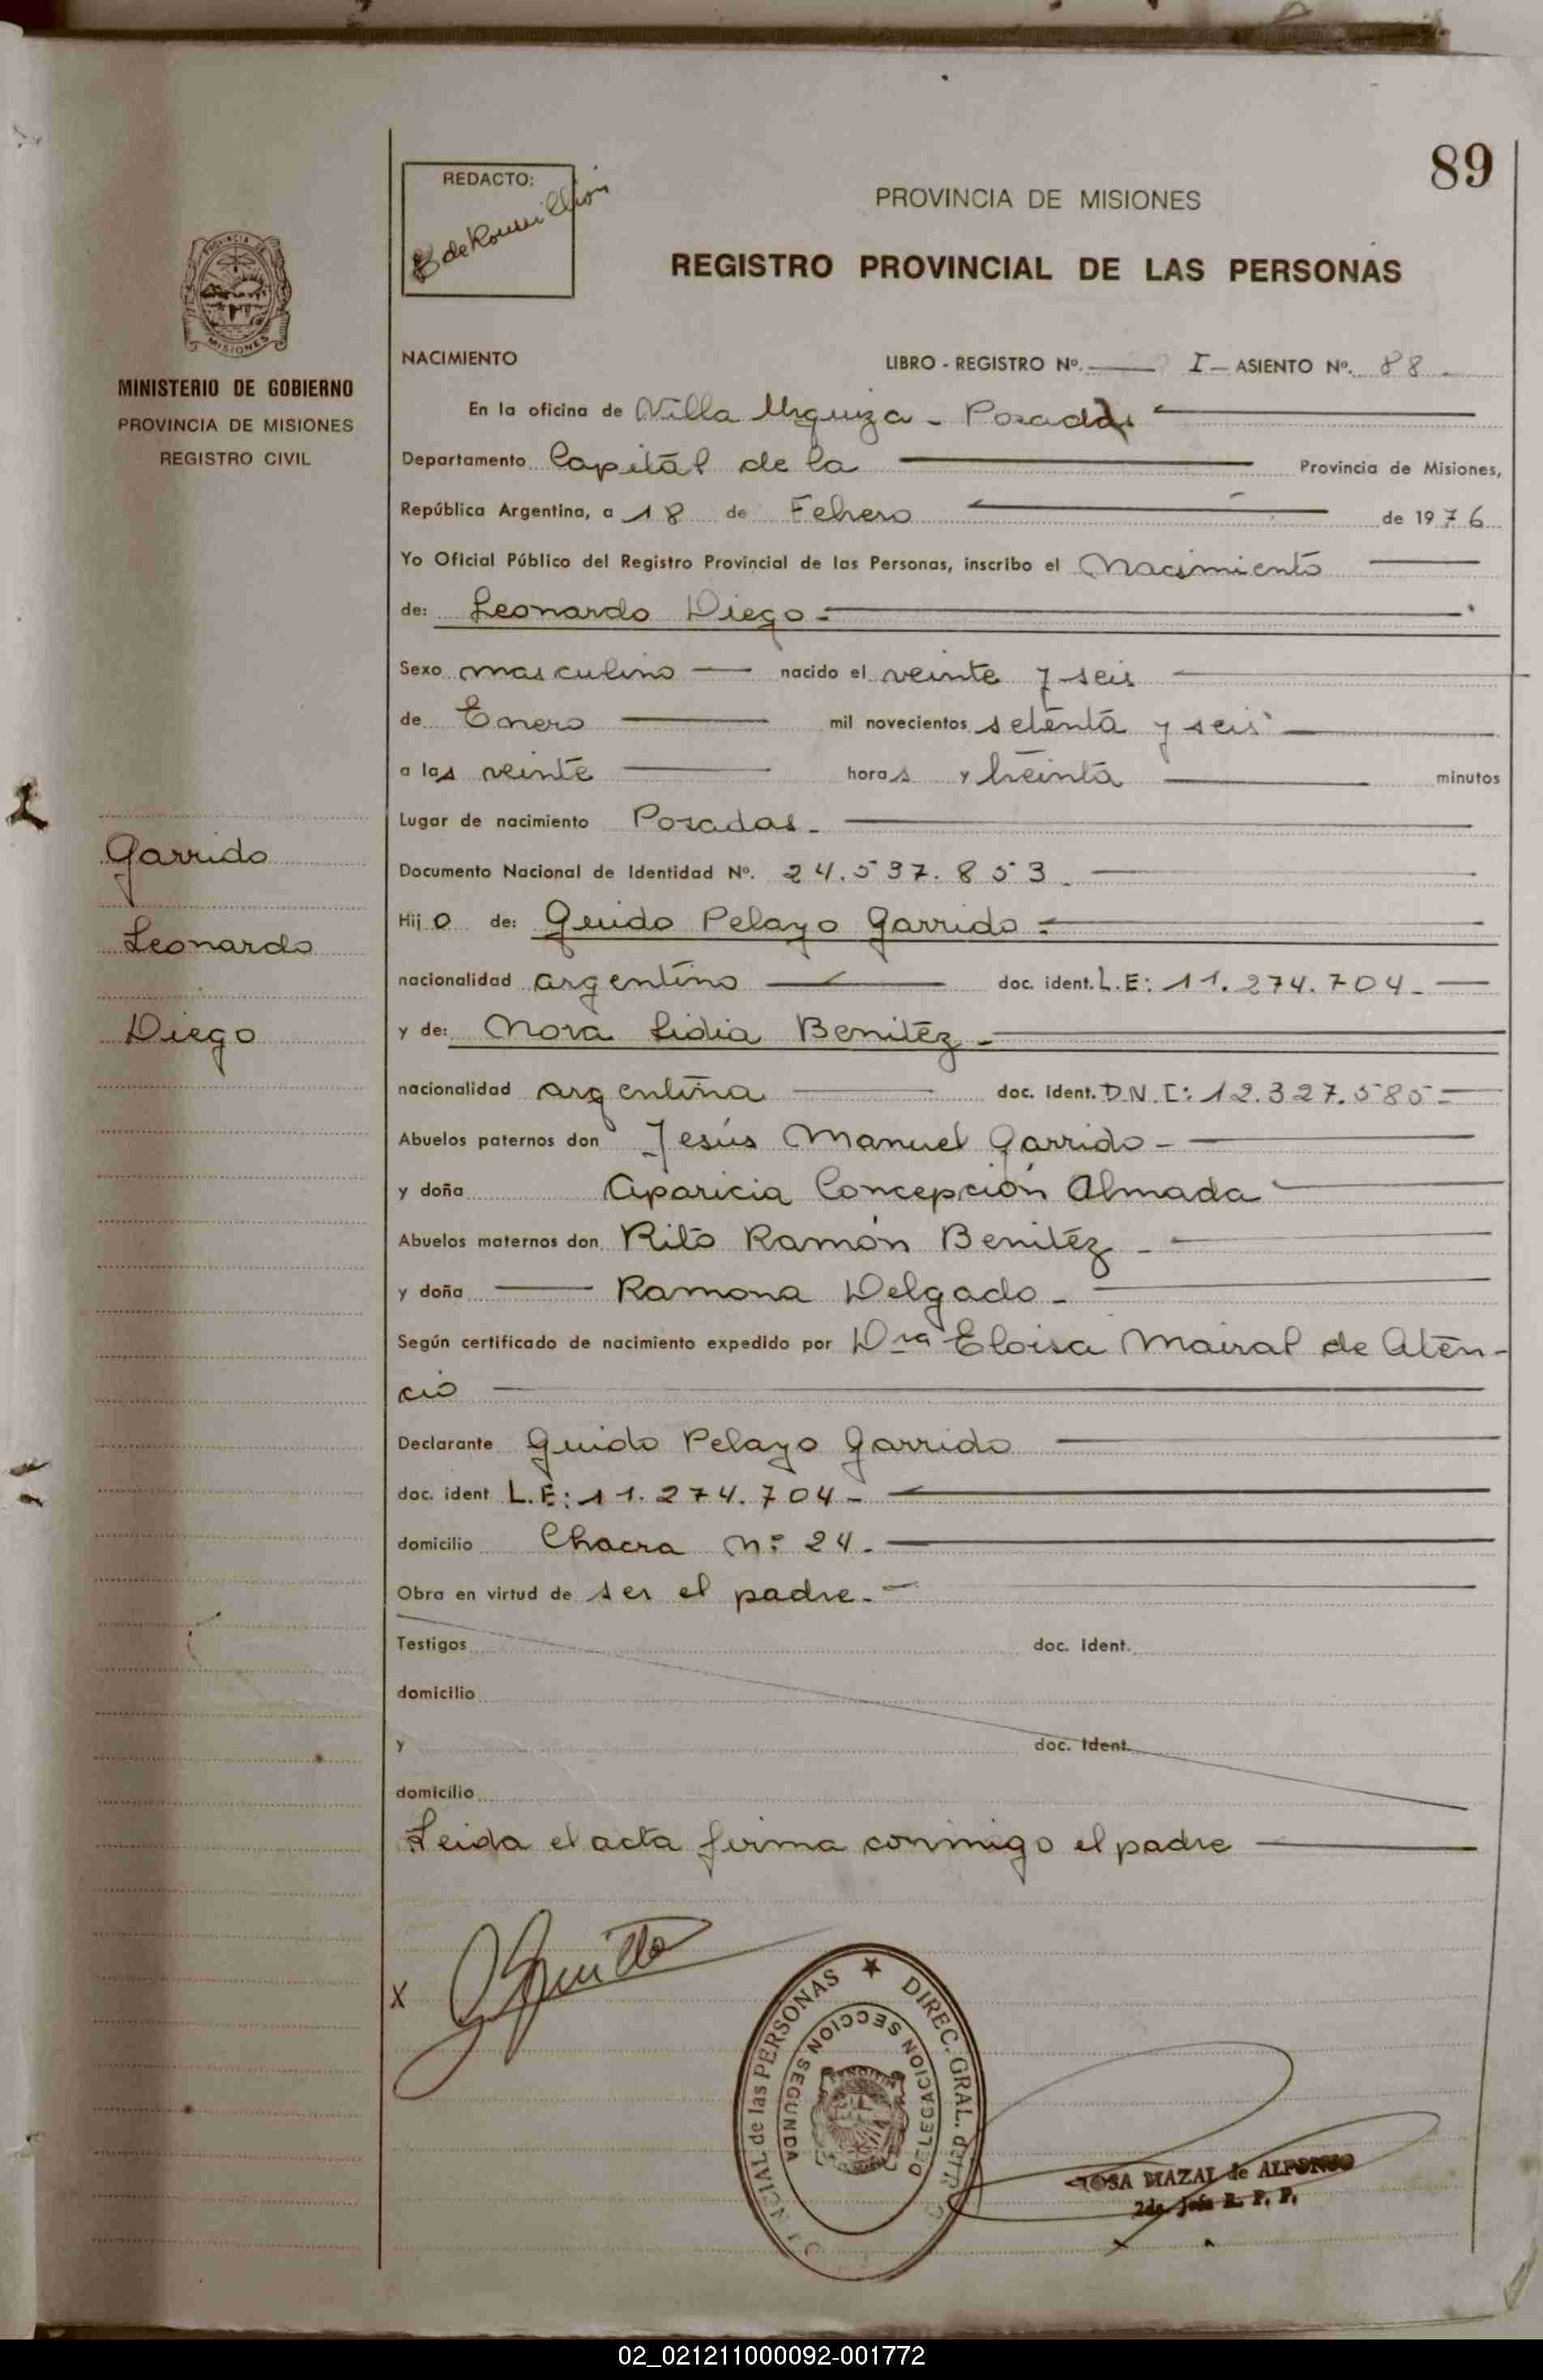 89
REDACTO:
PROVINCIA DE MISIONES
REGISTRO PROVINCIAL DE LAS PERSONAS
MISIONES
MINISTERIO DE GOBIERNO
PROVINCIA DE MISIONES
REGISTRO CIVIL
Garrido
Leonardo
Diego
NACIMIENTO LIBRO - REGISTRO Nº. I - ASIENTO Nº. 88.
En la oficina de Villa Urquiza - Posadas
Departamento Capital de la Provincia de Misiones,
República Argentina, a 18 de Febrero de 1976
Yo Oficial Público del Registro Provincial de las Personas, inscribo el Nacimiento
de: Leonardo Diego.-
Sexo masculino nacido el veinte y seis
de Enero mil novecientos setenta y seis
a las veinte horas y treinta minutos
Lugar de nacimiento Posadas.
Documento Nacional de Identidad Nº. 24.537.853.
Hijo de: Guido Pelayo Garrido.-
nacionalidad argentino doc. ident. L.E: 11.274.704.
y de: Nora Lidia Benitez.-
nacionalidad argentina doc. ident. D.N.I: 12.327.585.
Abuelos paternos don Jesús Manuel Garrido-
y doña Aparicia Concepción Almada
Abuelos maternos don Rito Ramón Benitez.
y doña Ramona Delgado.
Según certificado de nacimiento expedido por Dra Eloisa Mairal de Aten-
cio
Declarante Guido Pelayo Garrido
doc. ident L.E: 11.274.704-
domicilio Chacra Nº 24.
Obra en virtud de ser el padre.
Testigos doc. ident.
domicilio
y doc. ident.
domicilio
Leida el acta firma conmigo el padre
X
DIREC. GRAL. del R. PROVINCIAL de las PERSONAS
DELEGACION SECCION SEGUNDA
ROSA MAZAL de ALFONSO
2da. Jefa R. P. P.
02_021211000092-001772